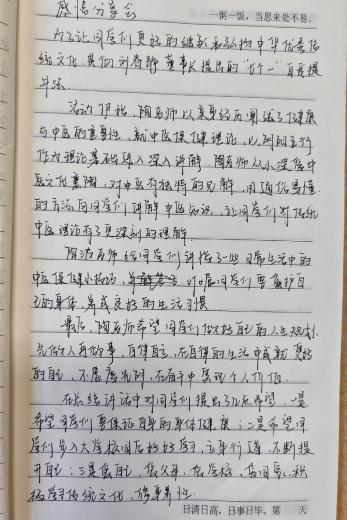 感悟分享会
一粥一饭，当思来处不易。
为了让同学们更好的继承和弘扬中华优秀传
统文化，贯彻刘春静董事长提出的"七个一"自我提
升法。
活动伊始，陶老师以亲身经历阐述了健康
与中医的重要性，就中医保健理论，以阴阳五行
作为理论基础深入讲解，陶老师从小深信中
医文化熏陶，对中医有独特的见解，用通俗易懂
的方法向同学们讲解中医知识，让同学们对传统
中医理论有了更深刻的理解。
陶老师给同学们讲授了一些日常生活中的
中医保健小技巧，叮嘱同学们要爱护自
己的身体，养成良好的生活习惯。
最后，陶老师希望同学们做好自己的人生规划，
先做人再做事，自律自己，在自律的生活中成就更好
的自己，不虚度光阴，在奋斗中实现个人价值。
在总结讲话中对同学们提出了几点希望，一是
希望同学们要保证自身的身体健康；二是希望同
学们步入大学校园后好好学习，立身行道，不断提
升自己；三是在家，在父母，在学校，在同学，积
极学习传统文化，修身养性
日清日高，日事日毕。第 天